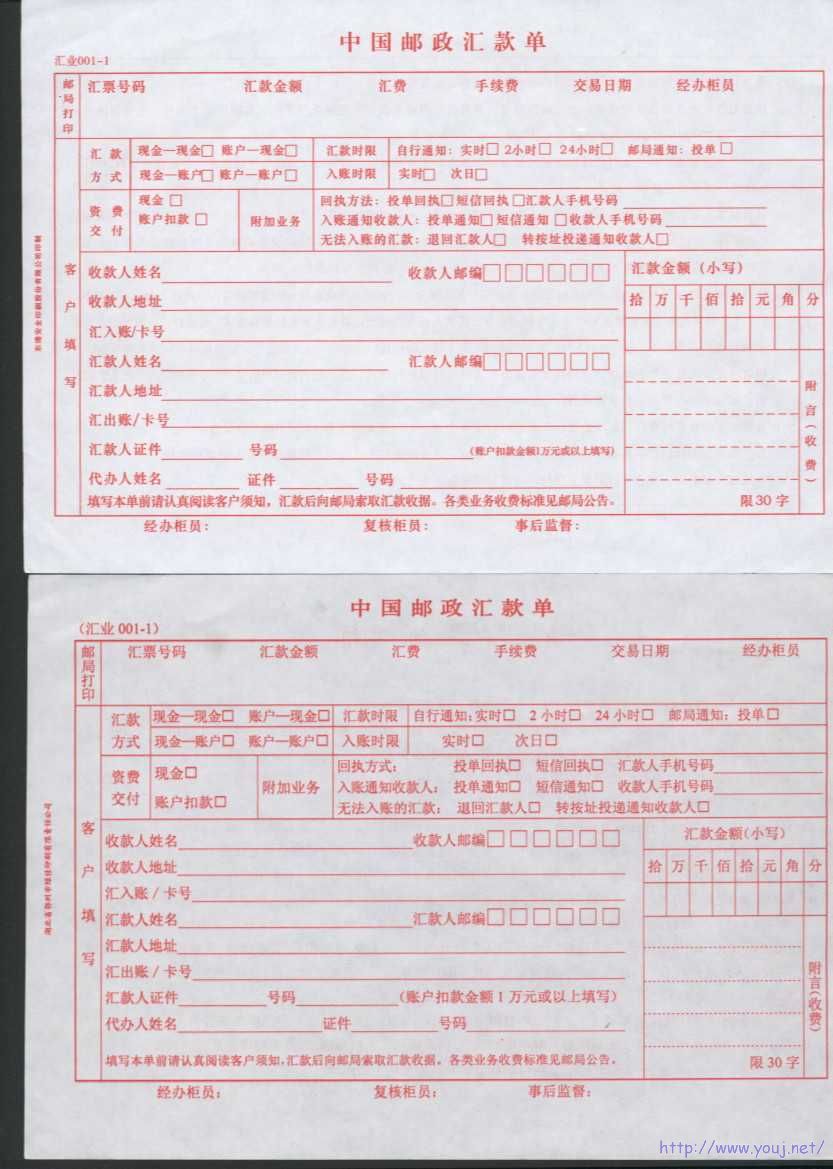 中国邮政汇款单
汇业001-1
邮局打印
汇票号码 汇款金额 汇费 手续费 交易日期 经办柜员
汇款方式
现金—现金□ 账户—现金□ 汇款时限 自行通知：实时□ 2小时□ 24小时□ 邮局通知：投单□
现金—账户□ 账户—账户□ 入账时限 实时□ 次日□
资费交付
现金□
账户扣款□
附加业务
回执方法：投单回执□短信回执□汇款人手机号码
入账通知收款人：投单通知□短信通知□收款人手机号码
无法入账的汇款：退回汇款人□ 转按址投递通知收款人□
客户填写
收款人姓名 收款人邮编□□□□□□ 汇款金额（小写）
收款人地址
拾 万 千 佰 拾 元 角 分
汇入账/卡号
汇款人姓名 汇款人邮编□□□□□□
汇款人地址
附言（收费）
汇出账/卡号
汇款人证件 号码 （账户扣款金额1万元或以上填写）
代办人姓名 证件 号码
填写本单前请认真阅读客户须知，汇款后向邮局索取汇款收据。各类业务收费标准见邮局公告。 限30字
经办柜员： 复核柜员： 事后监督：
中国邮政汇款单
（汇业 001-1）
邮局打印
汇票号码 汇款金额 汇费 手续费 交易日期 经办柜员
汇款方式
现金—现金□ 账户—现金□ 汇款时限 自行通知：实时□ 2小时□ 24小时□ 邮局通知：投单□
现金—账户□ 账户—账户□ 入账时限 实时□ 次日□
资费交付
现金□
账户扣款□
附加业务
回执方式： 投单回执□ 短信回执□ 汇款人手机号码
入账通知收款人： 投单通知□ 短信通知□ 收款人手机号码
无法入账的汇款： 退回汇款人□ 转按址投递通知收款人□
客户填写
收款人姓名 收款人邮编□□□□□□ 汇款金额(小写)
收款人地址
拾 万 千 佰 拾 元 角 分
汇入账 / 卡号
汇款人姓名 汇款人邮编□□□□□□
汇款人地址
附言(收费)
汇出账 / 卡号
汇款人证件 号码 （账户扣款金额 1 万元或以上填写）
代办人姓名 证件 号码
填写本单前请认真阅读客户须知，汇款后向邮局索取汇款收据。各类业务收费标准见邮局公告。 限 30 字
经办柜员： 复核柜员： 事后监督：
http://www.youj.net/